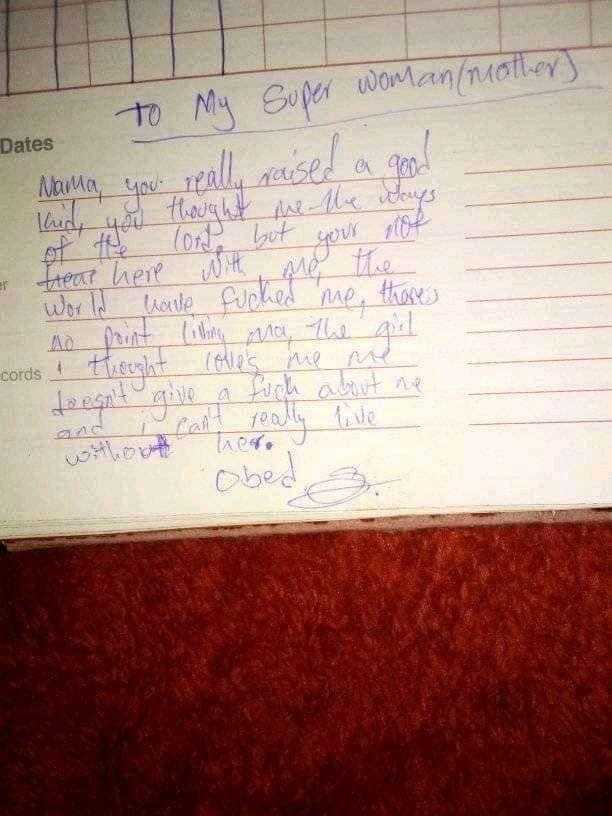 To My Super woman (mother)
Dates
Mama, you really raised a good
kid, you thought me the ways
of the lord, but your not
here with me, the
world have fucked me, theres
no point living ma, the girl
i thought loves me me
doesn't give a fuck about me
and i can't really live
without her.
Obed
er
cords